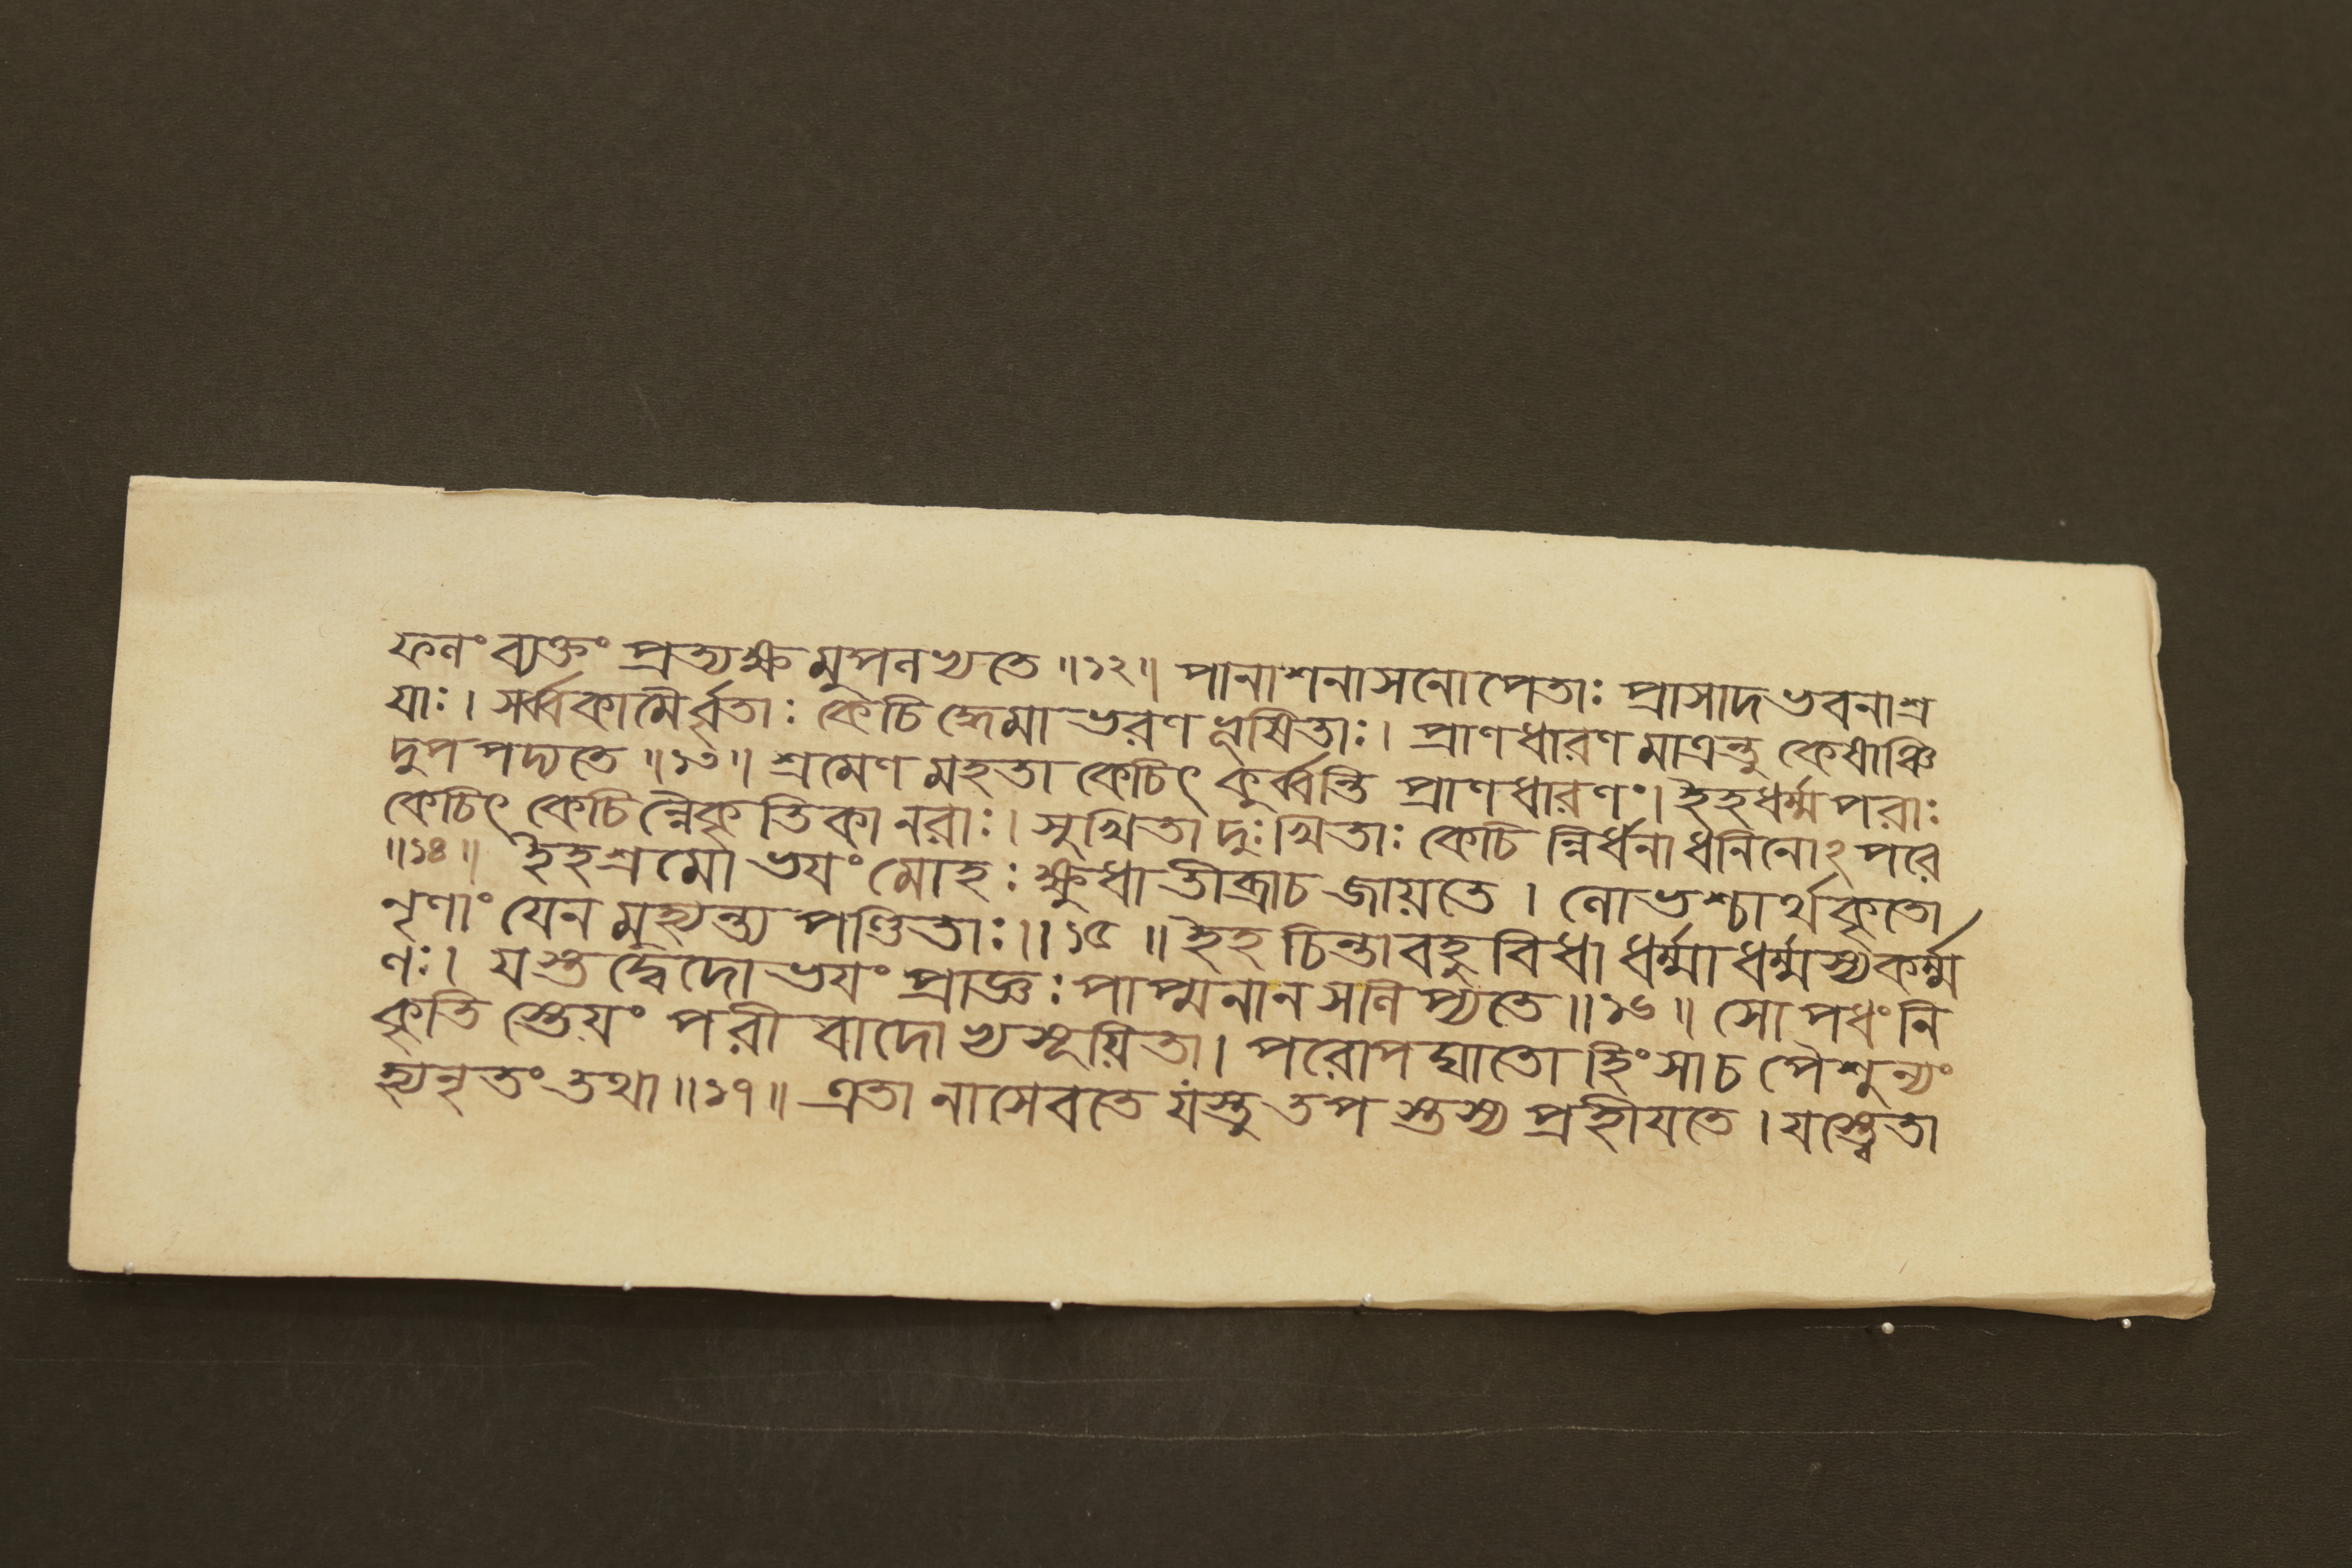 ফলং ব্যক্তং প্রত্যক্ষমুপলভ্যতে ॥১২॥ পানাশনাসনোপেতাঃ প্রাসাদভবনাশ্র
যাঃ। সর্ব্বকামৈর্বৃতাঃ কেচিদ্ধেমাভরণভূষিতাঃ। প্রাণধারণমাত্রন্তু কেষাঞ্চি
দুপপদ্যতে ॥১৩॥ শ্রমেণ মহতা কেচিৎ কুর্ব্বন্তি প্রাণধারণং। ইহধর্ম্মপরাঃ
কেচিৎ কেচিন্নৈকৃতিকা নরাঃ। সুখিতা দুঃখিতাঃ কেচিন্নির্ধনা ধনিনোঽপরে
॥১৪॥ ইহশ্রমো ভযং মোহঃ ক্ষুধা তীব্রাচ জায়তে। লোভশ্চার্থকৃতো
নৃণাং যেন মুহ্যন্ত্যপণ্ডিতাঃ॥১৫॥ ইহ চিন্তাবহুবিধা ধর্ম্মাধর্ম্মস্যকর্ম্ম
ণঃ। যস্তদ্বেদোভযং প্রাজ্ঞঃ পাপ্মনানসলিপ্যতে॥১৬॥ সোপধং নি
কৃতি স্তেয়ং পরীবাদোভ্যসূয়িতা। পরোপঘাতো হিংসাচ পৈশুন্যং
হ্যনৃতং তথা॥১৭॥ এতানাসেবতে যস্তু তপস্তস্য প্রহীযতে। যস্ত্বেতা